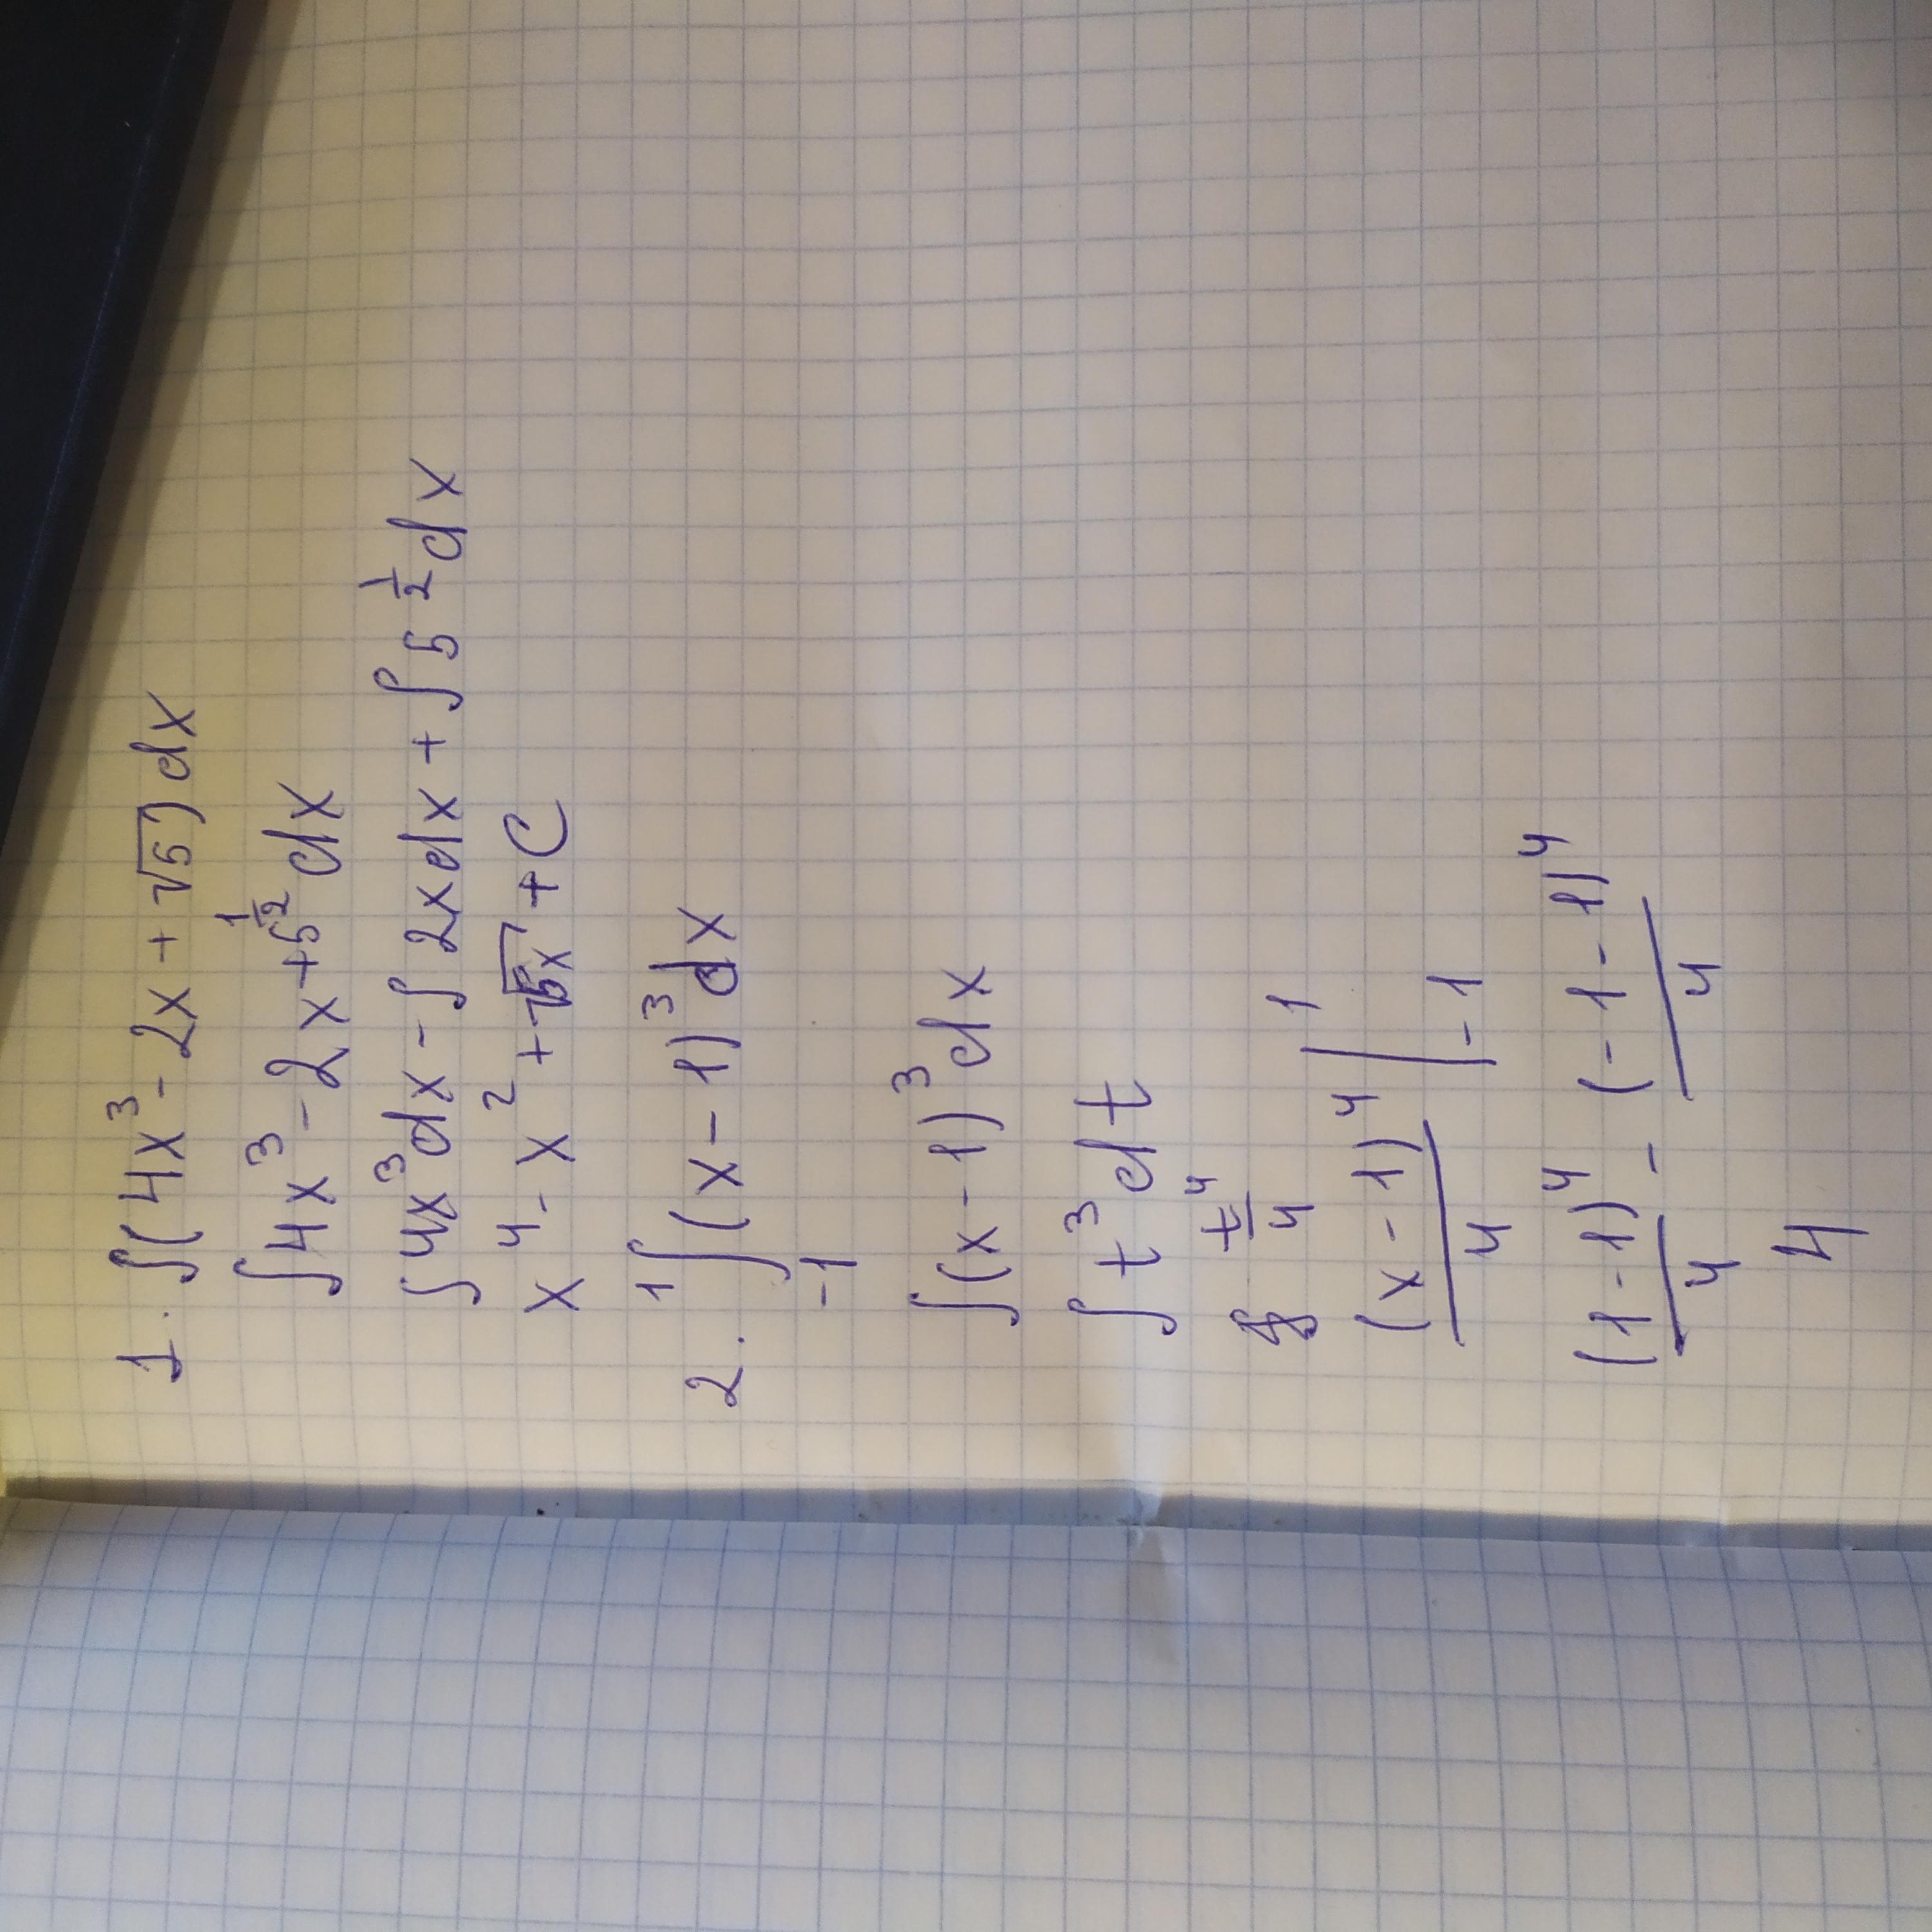 1. ∫(4x³ - 2x + √5) dx
∫4x³ - 2x + 5^(1/2) dx
∫4x³dx - ∫2xdx + ∫5^(1/2) dx
x⁴ - x² + √5x + C
2. ∫₋₁¹ (x - 1)³ dx
∫(x - 1)³ dx
∫t³ dt
t⁴/4
(x - 1)⁴/4 |₋₁¹
(1 - 1)⁴/4 - (-1 - 1)⁴/4
4